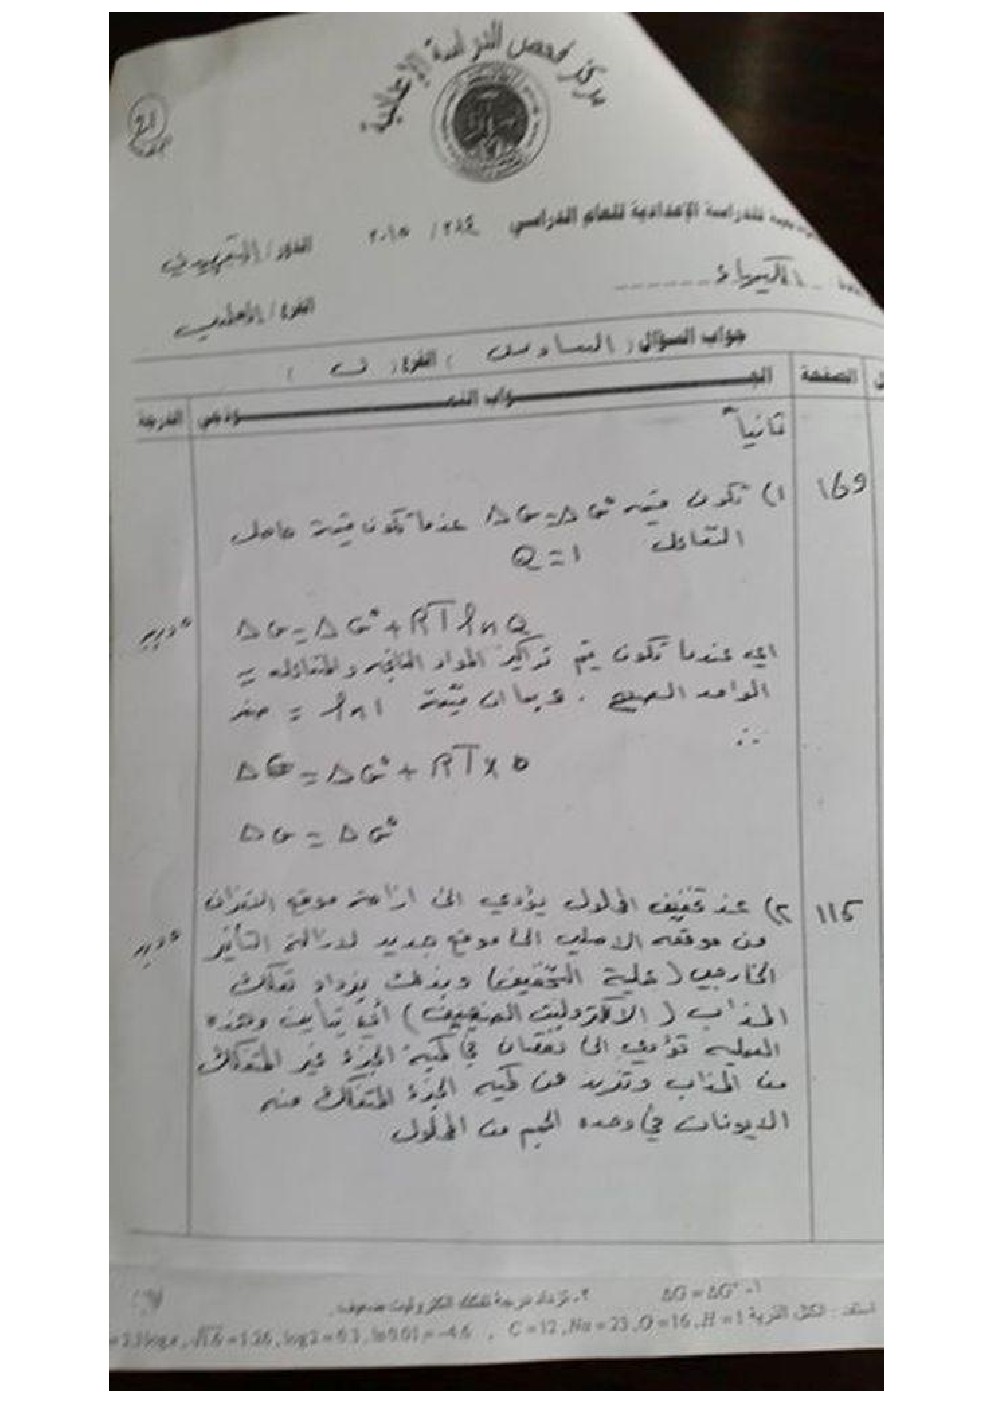 مركز فحص الدراسة الإعدادية
21
للدراسة الإعدادية للعام الدراسي ٢٠١٤ / ٢٠١٥ الدور / التمهيدي
الكيمياء
الفرع / الأحيائي
جواب السؤال ( السادس ) الفرع ( ب )
الصفحة الجـــواب النمـــوذجي الدرجة
ثانياً
169 ١) تكون قيمة ΔG = ΔG° عندما تكون قيمة حاصل
التفاعل Q = 1
ΔG = ΔG° + RT ln Q
اي عندما تكون قيم تراكيز المواد الناتجه والمتفاعله =
الواحد الصحيح . وبما ان قيمة ln 1 = صفر
∴
ΔG = ΔG° + RT x 0
ΔG = ΔG°
115 ٢) عند تخفيف المحلول يؤدي الى ازاحة موقع التوازن
من موقعه الاصلي الى موقع جديد لازالة التأثير
الخارجي ( عملية التخفيف ) وبذلك يزداد تفكك
المذاب ( الالكتروليت الضعيف ) أي يتأين وهذه
العمليه تؤدي الى نقصان في كمية الجزء غير المتفكك
من المذاب وتزيد من كميه الجزء المتفكك منه
الايونات في وحده الحجم من المحلول
١- ΔG = ΔG° ٢- تزداد درجة تفكك الكتروليت ضعيف.
استفد : الكتل الذرية C = 12 , Na = 23 , O = 16 , H = 1 , ln 0.01 = -4.6 , log 2 = 0.3 , √1.6 = 1.26